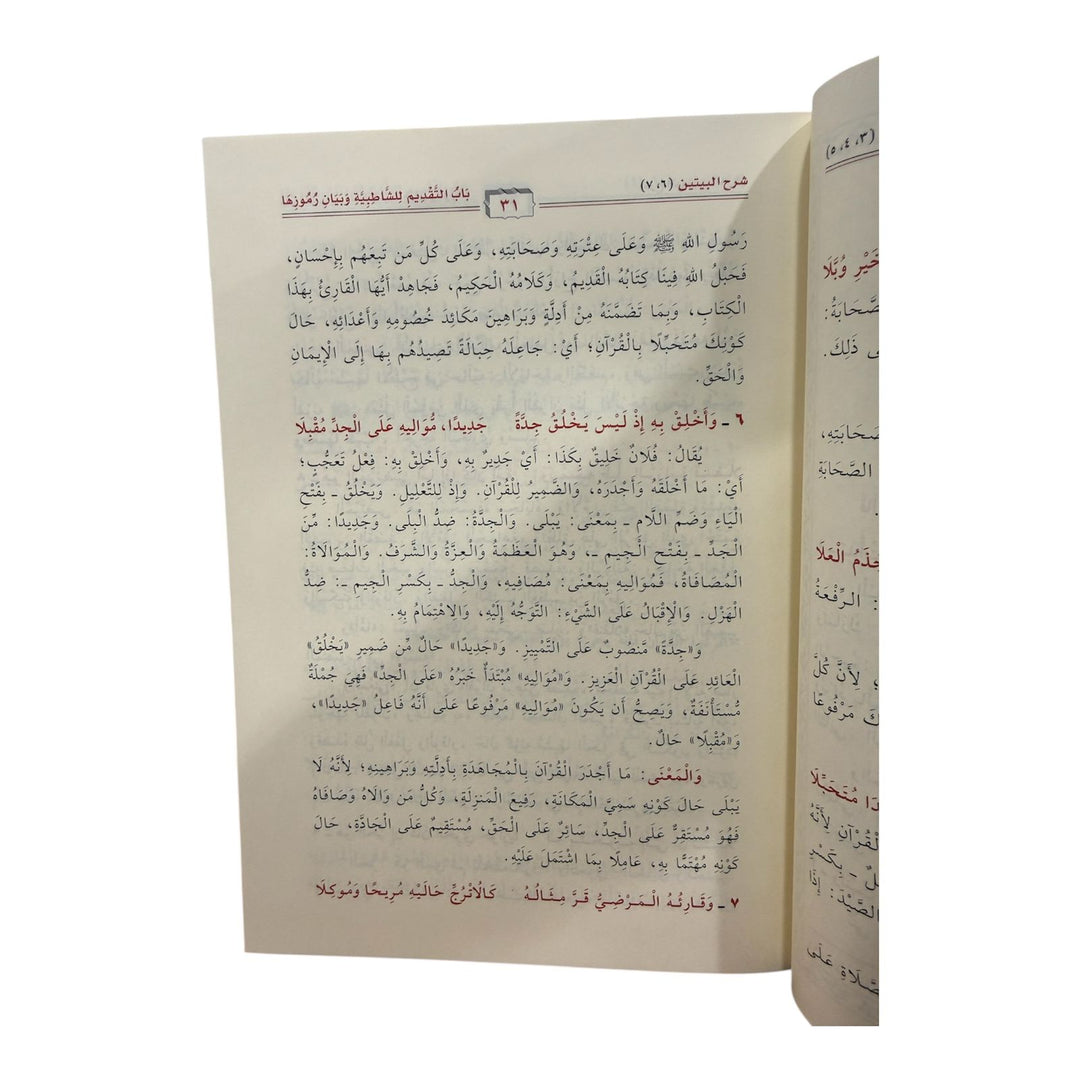 شرح البيتين (٦، ٧)
٣١
بَابُ التَّقْدِيمِ لِلشَّاطِبِيَّةِ وَبَيَانِ رُمُوزِهَا
رَسُولِ اللهِ ﷺ وَعَلَى عِتْرَتِهِ وَصَحَابَتِهِ، وَعَلَى كُلِّ مَن تَبِعَهُم بِإِحْسَانٍ،
فَحَبْلُ اللهِ فِينَا كِتَابُهُ الْقَدِيمُ، وَكَلَامُهُ الْحَكِيمُ، فَجَاهِدْ أَيُّهَا الْقَارِئُ بِهَذَا
الْكِتَابِ، وَبِمَا تَضَمَّنَهُ مِنْ أَدِلَّةٍ وَبَرَاهِينَ مَكَائِدَ خُصُومِهِ وَأَعْدَائِهِ، حَالَ
كَوْنِكَ مُتَحَبِّلًا بِالْقُرْآنِ؛ أَيْ: جَاعِلَهُ حِبَالَةً تَصِيدُهُم بِهَا إِلَى الْإِيمَانِ
وَالْحَقِّ.
٦ ـ وَأَخْلِقْ بِهِ إِذْ لَيْسَ يَخْلُقُ جِدَّةً جَدِيدًا، مُوَالِيهِ عَلَى الْجِدِّ مُقْبِلَا
يُقَالُ: فُلَانٌ خَلِيقٌ بِكَذَا: أَيْ جَدِيرٌ بِهِ، وَأَخْلِقْ بِهِ: فِعْلُ تَعَجُّبٍ؛
أَيْ: مَا أَخْلَقَهُ وَأَجْدَرَهُ، وَالضَّمِيرُ لِلْقُرْآنِ. وَإِذْ لِلتَّعْلِيلِ. وَيَخْلُقُ ـ بِفَتْحِ
الْيَاءِ وَضَمِّ اللَّامِ ـ بِمَعْنَى: يَبْلَى. وَالْجِدَّةُ: ضِدُّ الْبِلَى. وَجَدِيدًا: مِّنَ
الْجَدِّ ـ بِفَتْحِ الْجِيمِ ـ، وَهُوَ الْعَظَمَةُ وَالْعِزَّةُ وَالشَّرَفُ. وَالْمُوَالَاةُ:
الْمُصَافَاةُ، فَمُوَالِيهِ بِمَعْنَى: مُصَافِيهِ، وَالْجِدُّ ـ بِكَسْرِ الْجِيمِ ـ: ضِدُّ
الْهَزْلِ. وَالْإِقْبَالُ عَلَى الشَّيْءِ: التَّوَجُّهُ إِلَيْهِ، وَالِاهْتِمَامُ بِهِ.
وَ«جِدَّةً» مَّنصُوبٌ عَلَى التَّمْيِيزِ. وَ«جَدِيدًا» حَالٌ مِّن ضَمِيرِ «يَخْلُقُ»
الْعَائِدِ عَلَى الْقُرْآنِ الْعَزِيزِ. وَ«مُوَالِيهِ» مُبْتَدَأٌ خَبَرُهُ «عَلَى الْجِدِّ» فَهِيَ جُمْلَةٌ
مُّسْتَأْنَفَةٌ، وَيَصِحُّ أَن يَكُونَ «مُوَالِيهِ» مَرْفُوعًا عَلَى أَنَّهُ فَاعِلُ «جَدِيدًا»،
وَ«مُقْبِلًا» حَالٌ.
وَالْمَعْنَى: مَا أَجْدَرَ الْقُرْآنَ بِالْمُجَاهَدَةِ بِأَدِلَّتِهِ وَبَرَاهِينِهِ؛ لِأَنَّهُ لَا
يَبْلَى حَالَ كَوْنِهِ سَمِيَّ الْمَكَانَةِ، رَفِيعَ الْمَنزِلَةِ، وَكُلُّ مَن وَالَاهُ وَصَافَاهُ
فَهُوَ مُسْتَقِرٌّ عَلَى الْجِدِّ، سَائِرٌ عَلَى الْحَقِّ، مُسْتَقِيمٌ عَلَى الْجَادَّةِ، حَالَ
كَوْنِهِ مُهْتَمًّا بِهِ، عَامِلًا بِمَا اشْتَمَلَ عَلَيْهِ.
٧ ـ وَقَارِئُهُ الْمَرْضِيُّ قَرَّ مِثَالُهُ كَالُاتْرُجِّ حَالَيْهِ مُرِيحًا وَمُوكِلَا
(٣، ٤، ٥)
وُبَّلَا
ذَلِكَ.
الصَّحَابَةِ
الْعَلَا
الرِّفْعَةُ
لِأَنَّ كُلَّ
مَرْفُوعًا
مُتَحَبِّلًا
لِأَنَّهُ
الصَّيْدَ: إِذَا
عَلَى